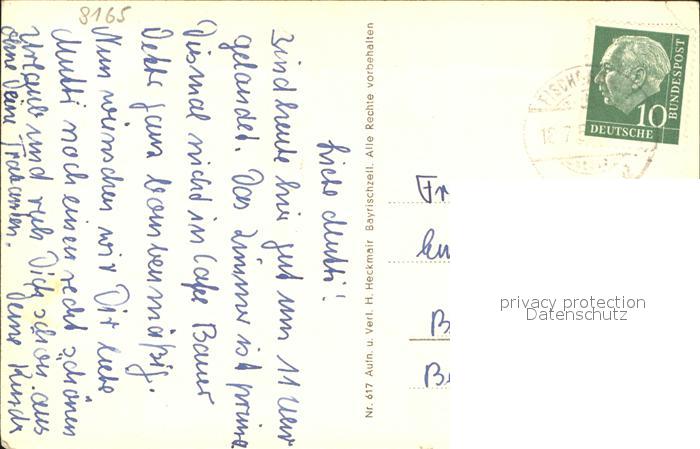 8165
Liebe Mutti!
Sind heute hier gut um 11 Uhr
gelandet. Das Zimmer ist prima
Diesmal nicht in Cafe Bauer
Dekte ganz bombenmäßig.
Nun wünschen wir Dir liebe
Mutti noch einen recht schönen
Urlaub und ruh Dich schön aus
ohne Deine Trabanten.
Deine Kinder
Nr. 617 Aufn. u. Verl. H. Heckmair Bayrischzell. Alle Rechte vorbehalten
10
DEUTSCHE
BUNDESPOST
FISCHB
18.7.5
Fr
B
B
privacy protection
Datenschutz